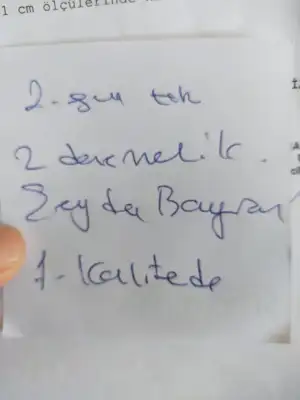 1 cm ölçülerinde
2. gün tek
2 denemelik.
Zeyda Bayram
1- Kalitede